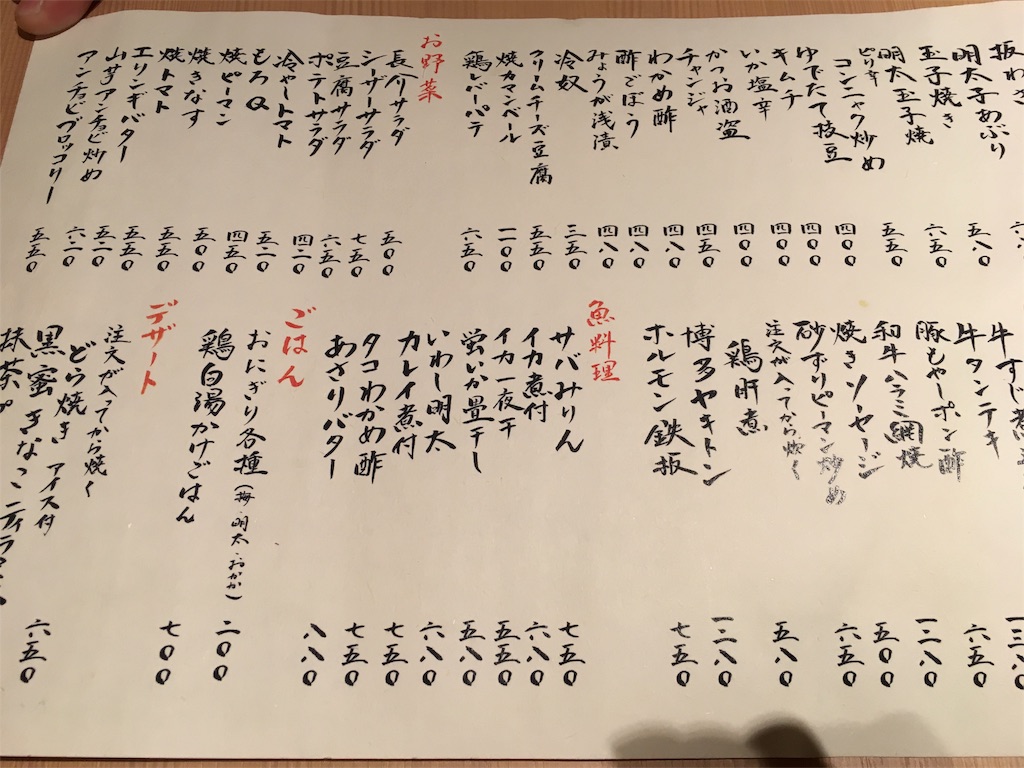 板わさ
明太子あぶり
玉子焼き
明太玉子焼
ピリ辛
コンニャク炒め
ゆでたて枝豆
キムチ
いか塩辛
かつお酒盗
チャンジャ
わかめ酢
酢ごぼう
みょうが浅漬
冷奴
クリームチーズ豆腐
焼カマンベール
鶏レバーパテ
五八〇
六五〇
五五〇
四〇〇
四〇〇
四〇〇
四〇〇
四五〇
四八〇
四八〇
四八〇
三五〇
五五〇
六五〇
お野菜
長介サラダ
シーザーサラダ
豆腐サラダ
ポテトサラダ
冷やしトマト
もろQ
焼ピーマン
焼きなす
焼トマト
エリンギバター
山芋アンチョビ炒め
アンチョビブロッコリー
五〇〇
七五〇
六五〇
四二〇
五二〇
四五〇
五〇〇
五五〇
五五〇
五二〇
六二〇
五五〇
牛すじ煮
牛タンテキ
豚もやしポン酢
和牛ハラミ網焼
焼きソーセージ
砂ずりピーマン炒め
注文が入ってから炊く
鶏肝煮
博多ヤキトン
ホルモン鉄板
六五〇
一二八〇
五〇〇
六五〇
五八〇
一二八〇
七五〇
魚料理
サバみりん
イカ煮付
イカ一夜干
蛍いか畳干し
いわし明太
カレイ煮付
タコわかめ酢
あさりバター
七五〇
六八〇
五五〇
五八〇
六八〇
七五〇
七五〇
八八〇
ごはん
おにぎり各種(梅・明太・おかか)
鶏白湯かけごはん
二〇〇
七〇〇
デザート
注文が入ってから焼く
どら焼き アイス付
黒蜜きなこティラミス
抹茶プ
六五〇